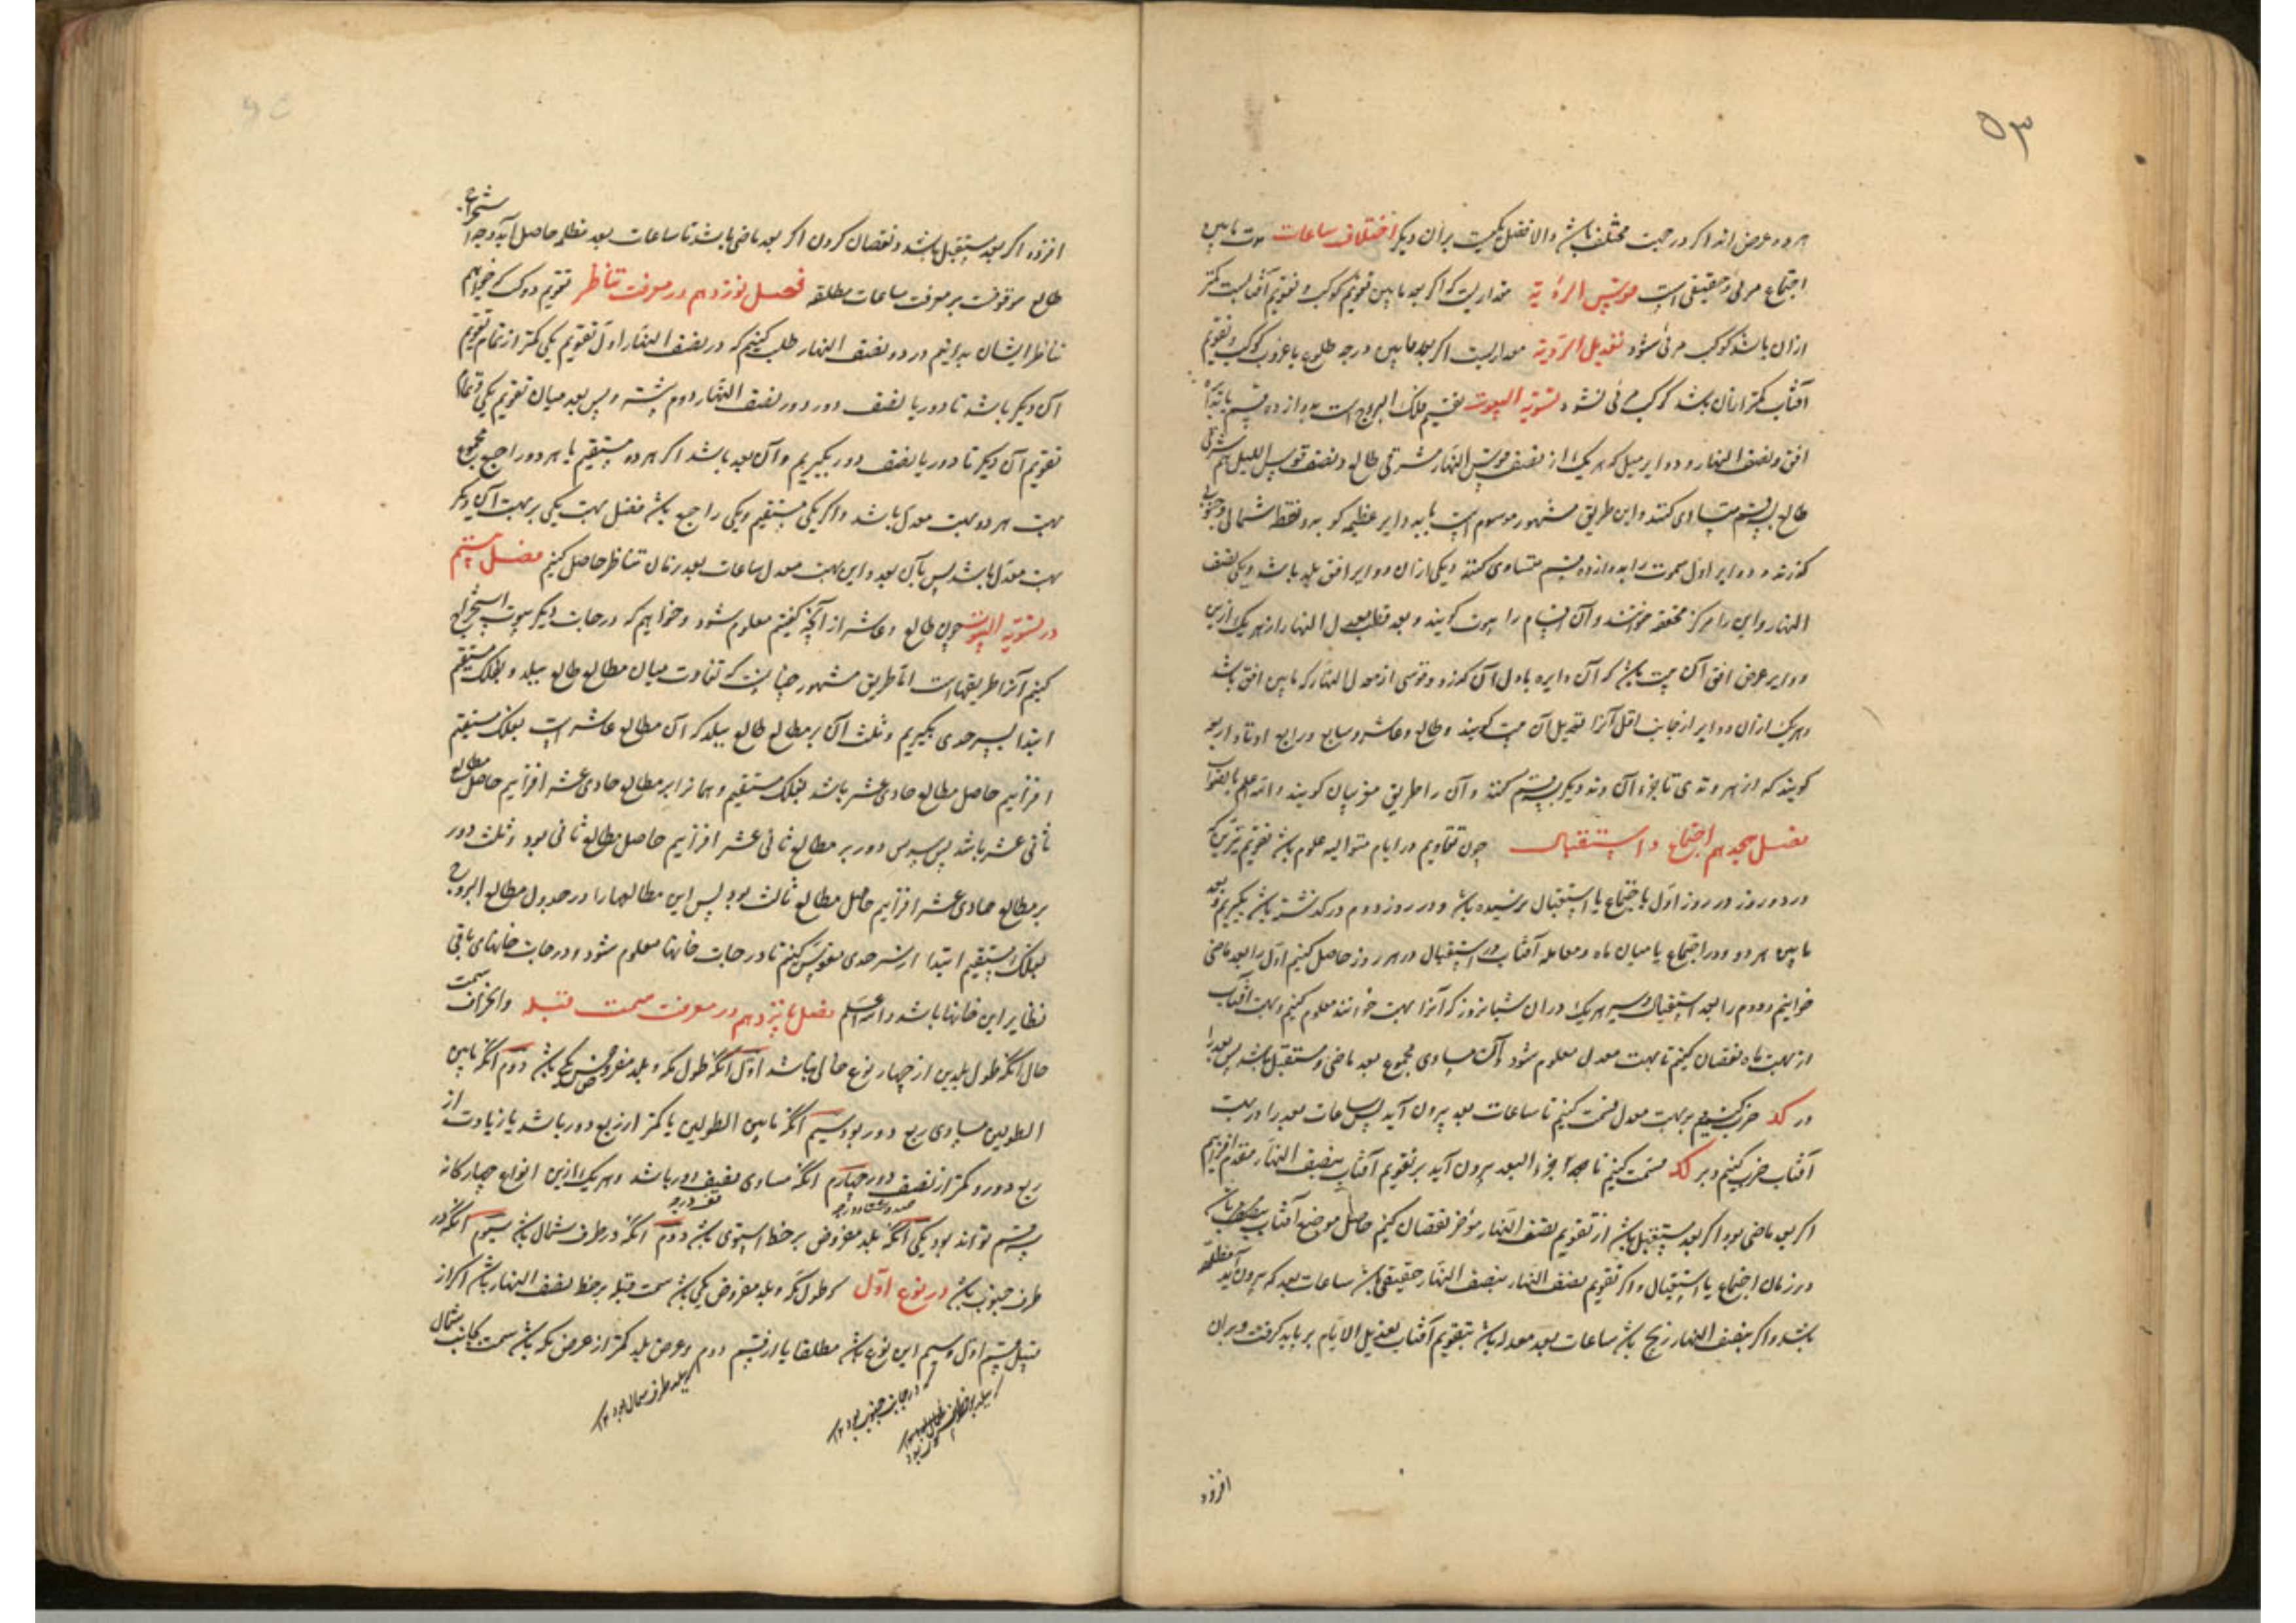 ۵۳
هر دو عرض اند اکر در جهت مختلف باشند والا فضل یکیست بر آن دیکر اختلاف ساعات مابین
اجتماع مرئی و حقیقی است قوس الرؤیة مقداریست که اکر بعد مابین تقویم کوکب و تقویم آفتاب کمتر
ازان باشد کوکب مرئی نشود تعدیل الرؤیة مقداریست اکر بعد مابین درجه طلوع یا غروب کوکب و تقویم
آفتاب کمتر ازان باشد کوکب مرئی نشود تسویة البیوت تقسیم فلک البروج است بدوازده قسم
افق و نصف النهار و دوایر میل که هر یک از نصف قوس النهار مشرقی طالع و نصف قوس اللیل هم شرقی
طالع بسه قسم متساوی کنند و این طریق مشهور موسوم است یا بدوایر عظیمه که بدو نقطه شمال و جنوب
کذرند و دوایر اول سموت را بدوازده قسم متساوی کنند و یکی ازان دوایر افق بلد باشد و یکی نصف
النهار و این را مرکز محققه خوانند و آن اقسام را بیوت کویند و بعد قطب معدل النهار از هر یک ازین
دوایر عرض افق آن بیت باشد که آن دایره باول آن کذرد و قوسی از معدل النهار که مابین افق باشد
و هر یک ازان دوایر از جانب اقل آنرا تعدیل آن بیت کویند و طالع و عاشر و سابع و رابع اوتاد اربعه
کویند که از هر وتدی تا بجزء آن وتد دیکر بسه قسم کنند و آن را طریق مغربیان کویند والله اعلم بالصواب
فصل هیجدهم اجتماع و استقبال چون تقاویم در ایام متوالیه معلوم باشد تقویم نیرین
در دو روز در روز اول باجتماع یا استقبال نرسیده باشد و در روز دوم درکذشته باشد بکیریم و بعد
مابین هر دو در اجتماع یا میان ماه و مقابله آفتاب در استقبال در هر روز حاصل کنیم اول را بعد ماضی
خوانیم و دوم را بعد استقبال و سیر هر یک دران شبانروز که آنرا بهت خوانند معلوم کنیم و بهت آفتاب
از بهت ماه نقصان کنیم تا بهت معدل معلوم شود و آن مساوی مجموع بعد ماضی و مستقبل باشد پس بعد را
در کد ضرب کنیم و بر بهت معدل قسمت کنیم تا ساعات بعد بیرون آید پس ساعات بعد را در بهت
آفتاب ضرب کنیم و بر کد قسمت کنیم تا جزء البعد بیرون آید بر تقویم آفتاب بنصف النهار مقدم افزاییم
اکر بعد ماضی بود و اکر بعد مستقبل باشد از تقویم نصف النهار مؤخر نقصان کنیم حاصل موضع آفتاب
در زمان اجتماع یا استقبال و اکر تقویم نصف النهار بنصف النهار حقیقی باشد ساعات بعد که بیرون آید مطلقه
باشد و اکر بنصف النهار زیج باشد ساعات بعد معدل باشد بتقویم آفتاب تعدیل الایام بر باید کرفت و بران
افزود
افزود اکر بعد مستقبل باشد و نقصان کردن اکر بعد ماضی باشد تا ساعات بعد مطلقه حاصل آید و جهة استخراج
طالع موقوفست بر معرفت ساعات مطلقه فصل نوزدهم در معرفت تناظر تقویم دو کوکب که خواهیم
تناظر ایشان بدانیم در دو نصف النهار طلب کنیم که در نصف النهار اول تقویم یکی کمتر از تمام تقویم
آن دیکر باشد تا دور یا نصف دور و در نصف النهار دوم پس بعد میان تقویم یکی و تمام
تقویم آن دیکر تا دور یا نصف دور بکیریم و آن بعد باشد اکر هر دو مستقیم یا هر دو راجع مجموع
بهت هر دو بهت معدل باشد و اکر یکی مستقیم و یکی راجع باشد فضل بهت یکی بر بهت آن دیکر
بهت معدل باشد پس بآن بعد و این بهت معدل ساعات بعد زمان تناظر حاصل کنیم فصل بیستم
در تسویة البیوت چون طالع و عاشر از آنچه کفتیم معلوم شود و خواهیم که درجات دیکر بیوت استخراج
کنیم آنرا طریقهاست اما طریق مشهور چنانست که تفاوت میان مطالع طالع ببلد و بفلک مستقیم
ابتدا بسر جدی بکیریم و ثلث آن بر مطالع طالع ببلد که آن مطالع عاشر است بفلک مستقیم
افزاییم حاصل مطالع حادی عشر باشد بفلک مستقیم و همانرا بر مطالع حادی عشر افزاییم حاصل مطالع
ثانی عشر باشد پس سدس دور بر مطالع ثانی عشر افزاییم حاصل مطالع ثانی بود و ثلث دور
بر مطالع حادی عشر افزاییم حاصل مطالع ثالث بود پس این مطالعها را در جدول مطالع البروج
بفلک المستقیم ابتدا از سر جدی مقوس کنیم تا درجات خانها معلوم شود و درجات خانهای باقی
نظایر این خانها باشد والله اعلم فصل در معرفت سمت قبله و انحراف سمت
حال آنکه طول بلدین از چهار نوع خالی نباشد اول آنکه طول مکه و بلد مفروض یکی باشد دوم آنکه مابین
الطولین مساوی ربع دور بود سیم آنکه مابین الطولین یا کمتر از ربع دور باشد یا زیادت از
ربع دور و کمتر از نصف دور چهارم آنکه مساوی نصف دور باشد و هر یک ازین انواع چهارکانه
سه قسم تواند بود یکی آنکه بلد مفروض بر خط استوی باشد دوم آنکه در طرف شمال باشد سیوم آنکه در
طرف جنوب باشد در نوع اول که طول مکه و بلد مفروض یکی باشد سمت قبله بر خط نصف النهار باشد اکر از
قبیل قسم اول و سیم این نوع باشد مطلقا یا از قسم دوم و عرض بلد کمتر از عرض مکه باشد سمت بجانب شمال
که بلد طرف شمال بود ۱۲
که در جانب جنوب بود ۱۲